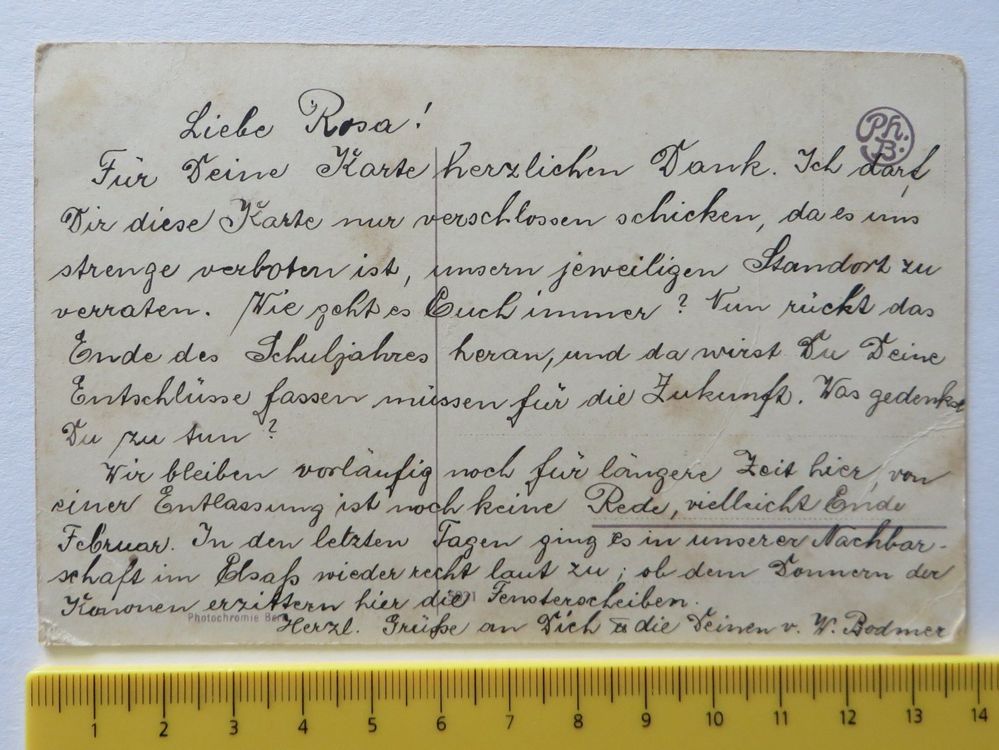 Liebe Rosa!
Ph.
B.
Für Deine Karte herzlichen Dank. Ich darf
Dir diese Karte nur verschlossen schicken, da es uns
strenge verboten ist, unsern jeweiligen Standort zu
verraten. Wie geht es Euch immer? Nun rückt das
Ende des Schuljahres heran, und da wirst Du Deine
Entschlüsse fassen müssen für die Zukunft. Was gedenkst
Du zu tun?
Wir bleiben vorläufig noch für längere Zeit hier, von
einer Entlassung ist noch keine Rede, vielleicht Ende
Februar. In den letzten Tagen ging es in unserer Nachbar-
schaft im Elsaß wieder recht laut zu; ob dem Donnern der
Kanonen erzittern hier die Fensterscheiben.
Photochromie
Herzl. Grüße an Dich u die Deinen v. W. Bodmer
1 2 3 4 5 6 7 8 9 10 11 12 13 14